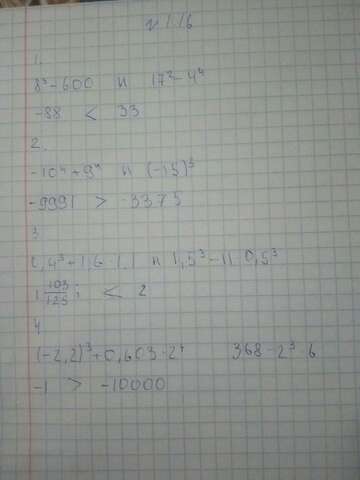 № 1.16
1.
8³-600 и 17²-4⁴
-88 < 33
2.
-10⁴+9⁴ и (-15)³
-9991 > -3375
3
0,4³+1,6·1,1 и 1,5³-11·0,5³
1 103/125 ; < 2
4
(-2,2)³+0,603·2⁴ 368-2³·6
-1 > -10000